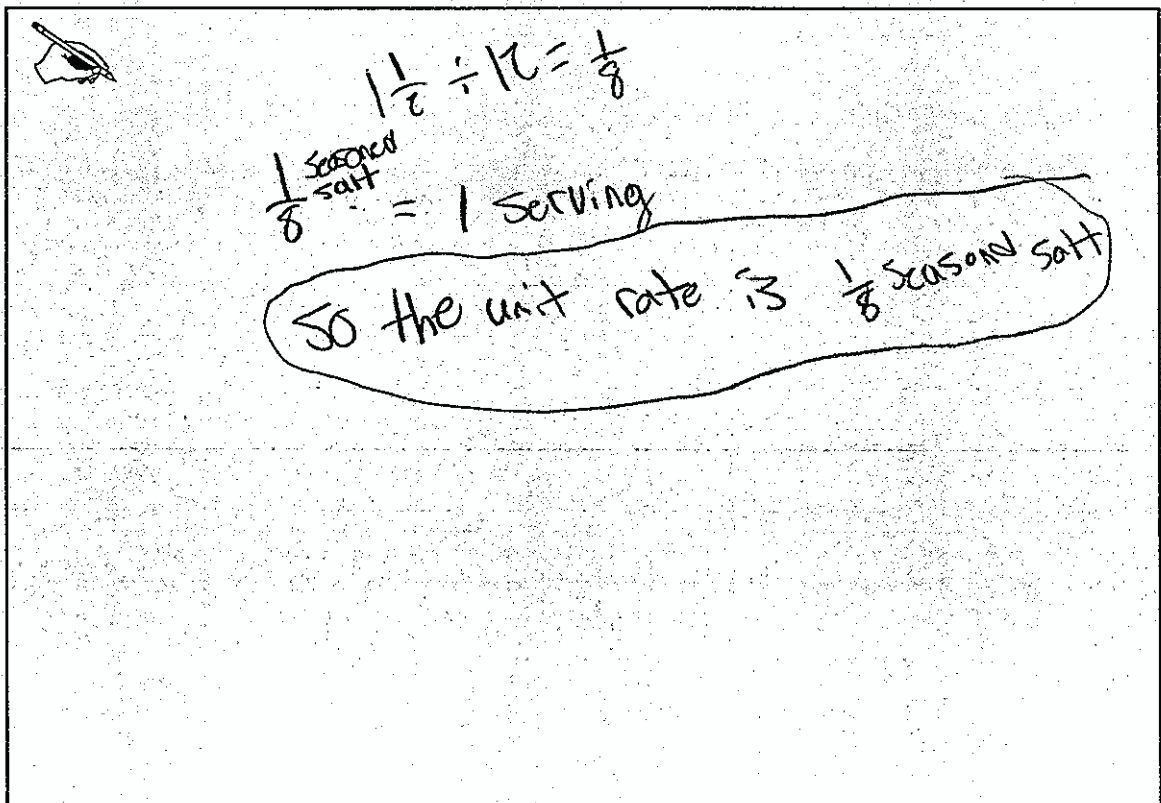 1 1/2 ÷ 12 = 1/8
1/8 seasoned salt = 1 serving
So the unit rate is 1/8 seasond salt